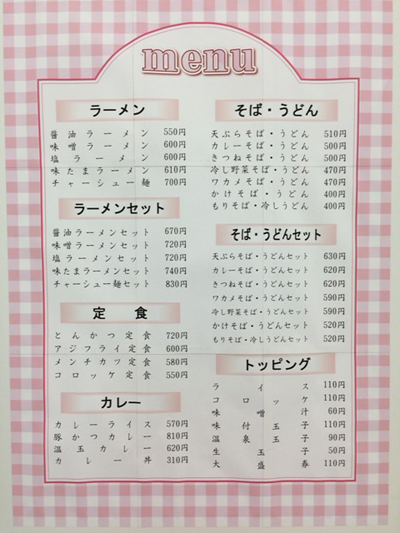 menu
ラーメン
醤油ラーメン 550円
味噌ラーメン 600円
塩ラーメン 600円
味たまラーメン 610円
チャーシュー麺 700円
ラーメンセット
醤油ラーメンセット 670円
味噌ラーメンセット 720円
塩ラーメンセット 720円
味たまラーメンセット 740円
チャーシュー麺セット 830円
定食
とんかつ定食 720円
アジフライ定食 600円
メンチカツ定食 580円
コロッケ定食 550円
カレー
カレーライス 570円
豚かつカレー 810円
温玉カレー 620円
カレー丼 310円
そば・うどん
天ぷらそば・うどん 510円
カレーそば・うどん 500円
きつねそば・うどん 500円
冷し野菜そば・うどん 470円
ワカメそば・うどん 470円
かけそば・うどん 400円
もりそば・冷しうどん 400円
そば・うどんセット
天ぷらそば・うどんセット 630円
カレーそば・うどんセット 620円
きつねそば・うどんセット 620円
ワカメそば・うどんセット 590円
冷し野菜そば・うどんセット 590円
かけそば・うどんセット 520円
もりそば・冷しうどんセット 520円
トッピング
ライス 110円
コロッケ 110円
味噌汁 60円
味付玉子 110円
温泉玉子 90円
生玉子 50円
大盛 110円